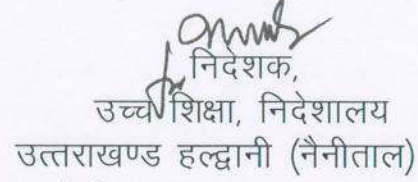 निदेशक,
उच्च शिक्षा, निदेशालय
उत्तराखण्ड हल्द्वानी (नैनीताल)